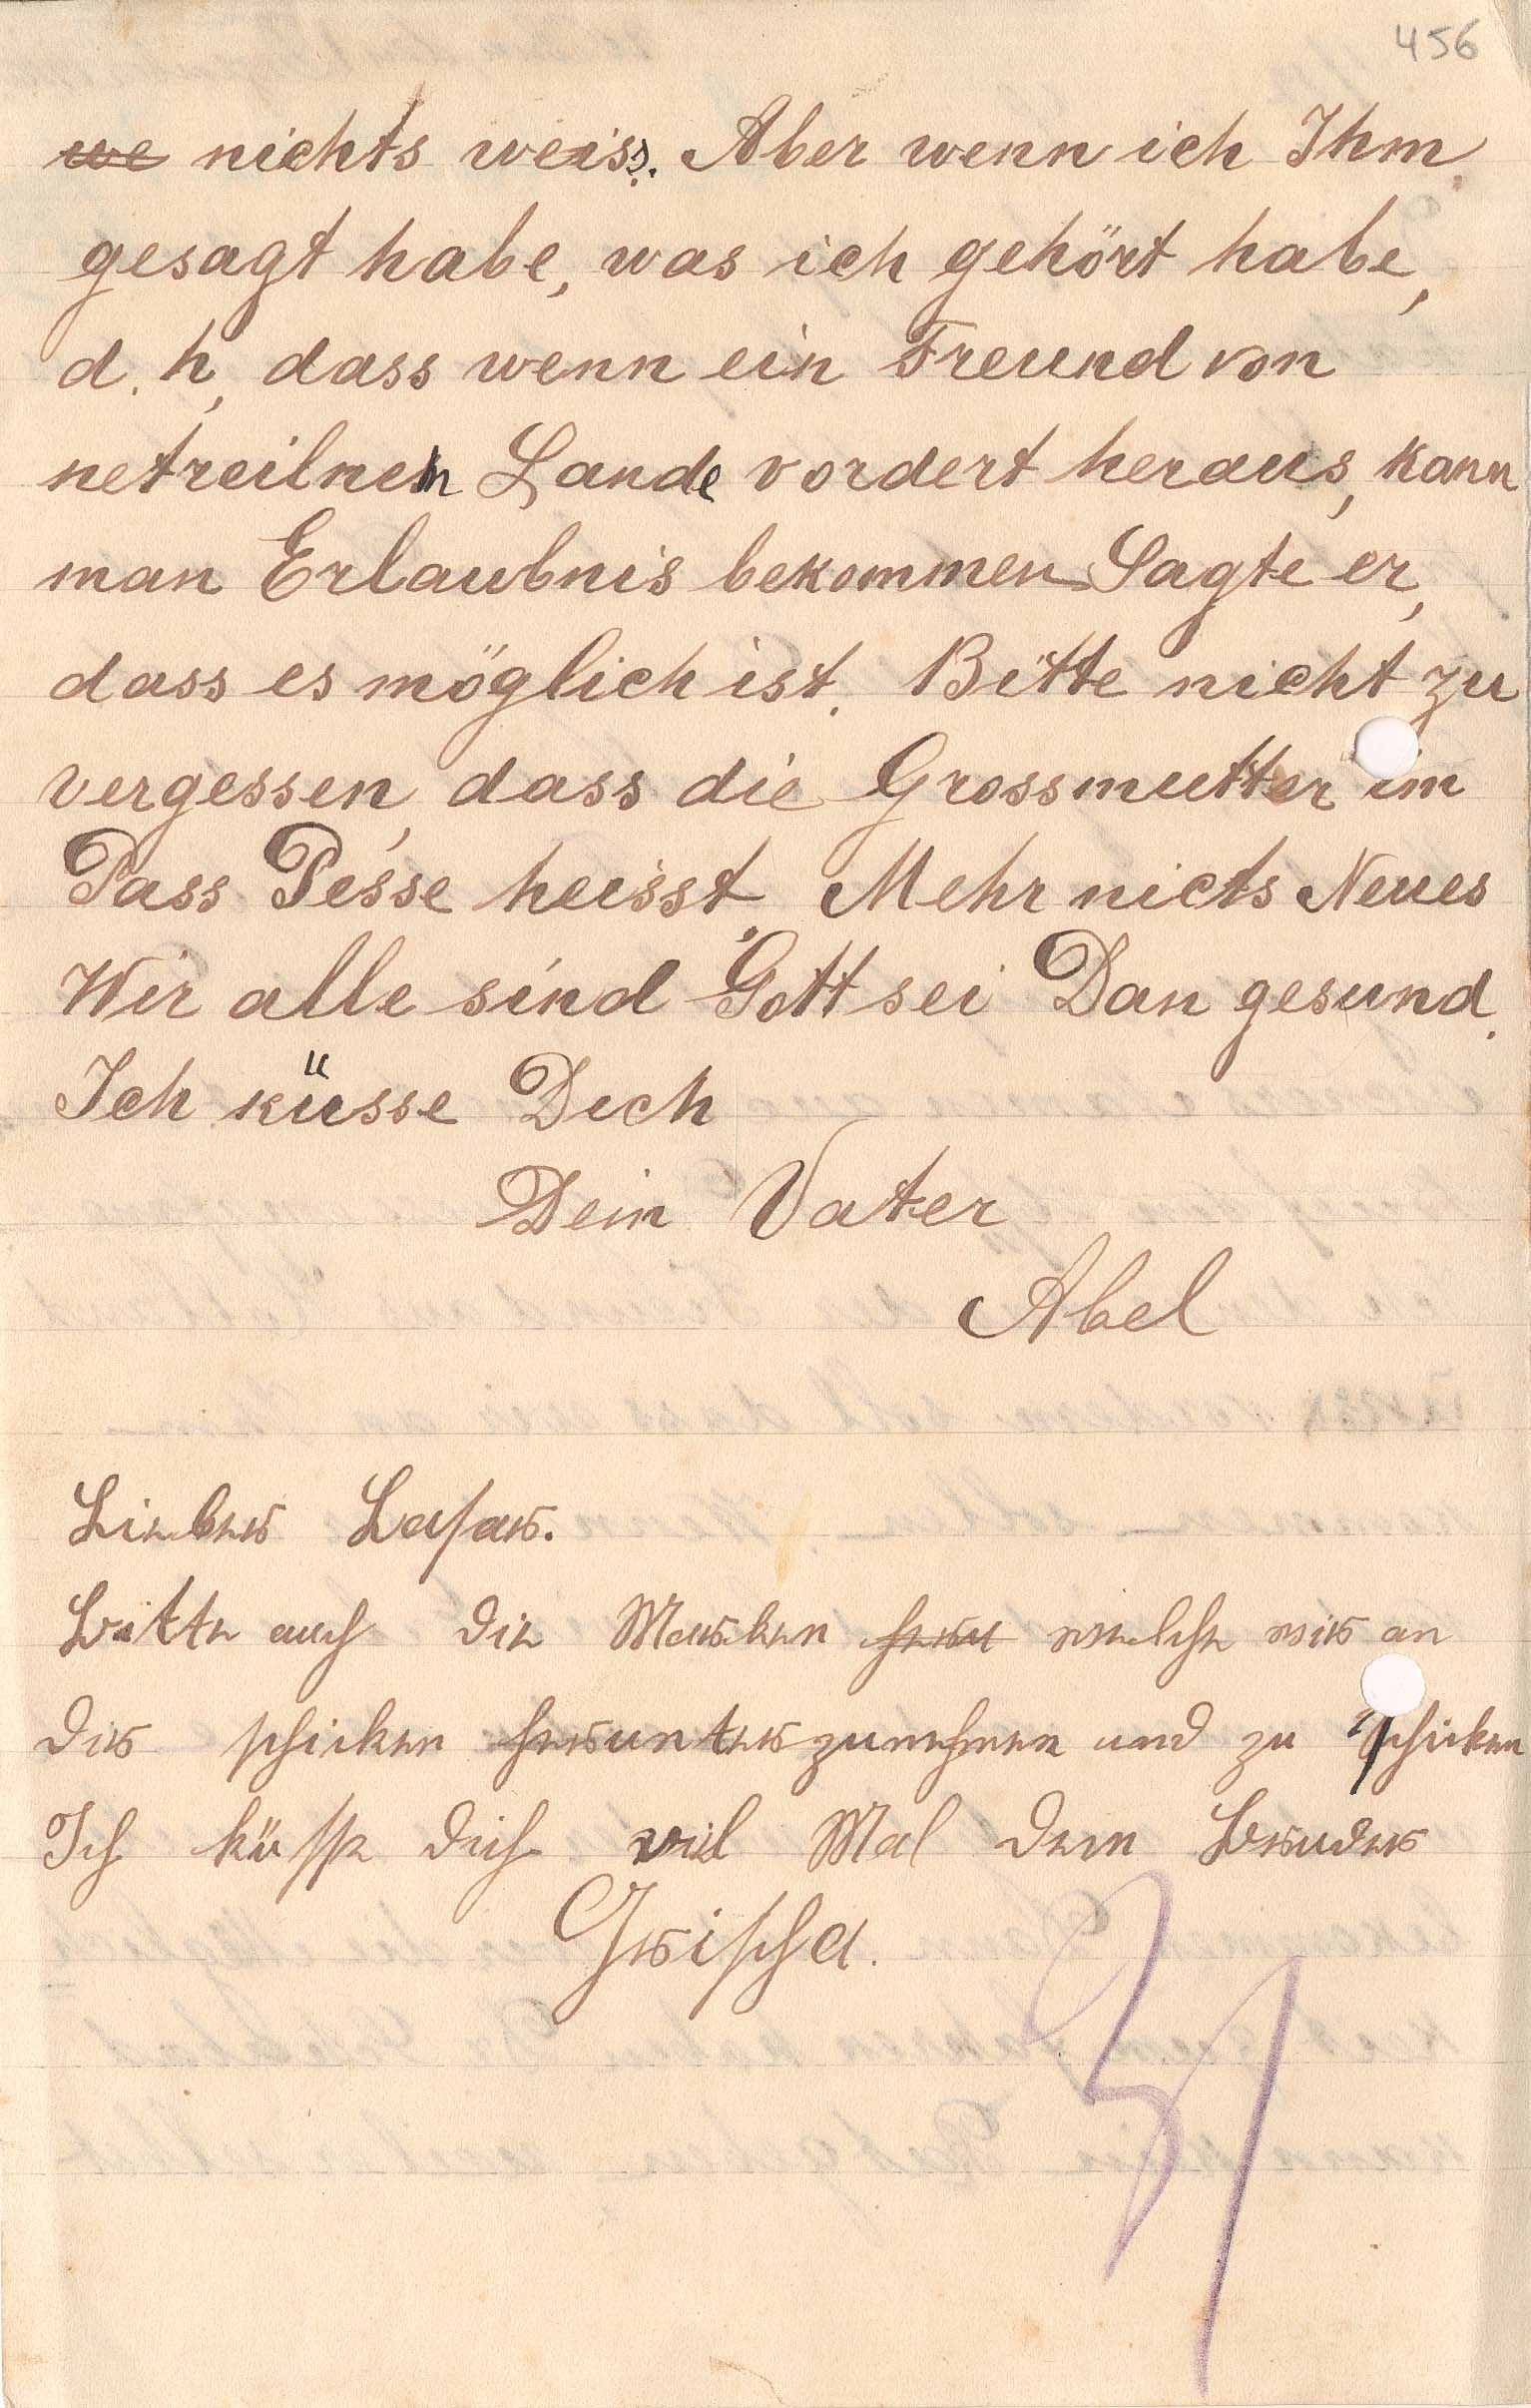 456
we nichts weiss. Aber wenn ich Ihm
gesagt habe, was ich gehört habe,
d. h, dass wenn ein Freund von
netreilnem Lande vordert heraus, kann
man Erlaubnis bekommen Sagte er,
dass es möglich ist. Bitte nicht zu
vergessen, dass die Grossmutter im
Pass Pesse heisst. Mehr nicts Neues
Wir alle sind Gott sei Dan gesund.
Ich küsse Dich
Dein Vater
Abel
Lieber Lasar.
Bitte auch die Marken welche wir an
dir schicken herunterzunehmen und zu schicken
Ich küsse dich viel Mal dein Bruder
Grischa.